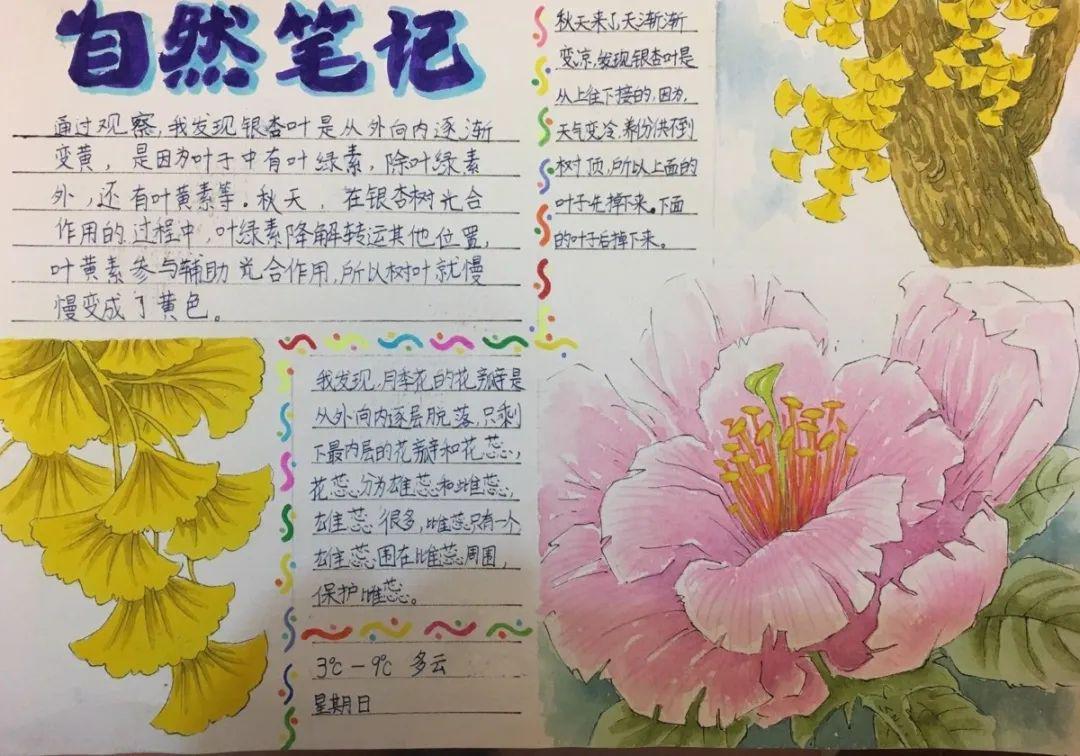 自然笔记
通过观察，我发现银杏叶是从外向内逐渐
变黄，是因为叶子中有叶绿素，除叶绿素
外，还有叶黄素等。秋天，在银杏树光合
作用的过程中，叶绿素降解转运其他位置，
叶黄素参与辅助光合作用，所以树叶就慢
慢变成了黄色。
秋天来了天渐渐
变凉，发现银杏叶是
从上往下接的，因为，
天气变冷，养分供不到
树顶，所以上面的
叶子先掉下来。下面
的叶子后掉下来。
我发现，月季花的花瓣是
从外向内逐层脱落，只剩
下最内层的花瓣和花蕊，
花蕊分为雄蕊和雌蕊，
雄蕊很多，雌蕊只有一个
雄蕊围在雌蕊周围，
保护雌蕊。
3℃-9℃ 多云
星期日